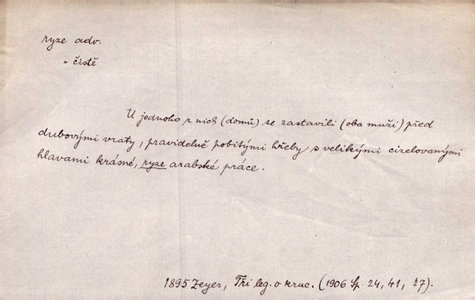 ryze adv.
- čistě
U jednoho z nich (domů) se zastavili (oba muži) před
dubovými vraty, pravidelně pobitými hřeby s velikými cizelovanými
hlavami krásné, ryze arabské práce.
1895 Zeyer, Tři leg. o kruc. (1906 Sp. 24, 41, 27).